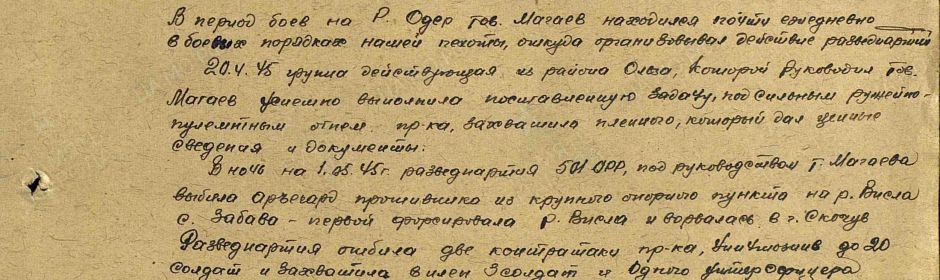 В период боев на Р. Одер тов. Магаев находился почти ежедневно
в боевых порядках нашей пехоты, откуда организовывал действие разведпартий
20.4.45 группа действующая из района Ольза, которой руководил тов.
Магаев успешно выполнила поставленную задачу, под сильным ружейно-
пулеметным огнем пр-ка, захватила пленного, который дал ценные
сведения и документы.
В ночь на 1.05.45г. разведпартия 501 ОРР, под руководством т. Магаева
выбила арьегард противника из крупного опорного пункта на р. Висла
с. Забава - первой форсировала р. Висла и ворвалась в г. Скочув
Разведпартия отбила две контратаки пр-ка, уничтожив до 20
солдат и захватила в плен 3 солдат и Одного унтерофицера